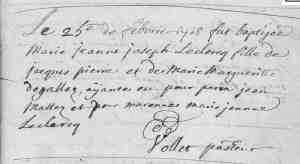 Le 25e de febvrier 1758 fut baptizée
Marie jeanne joseph Leclercq fille de
jacques pierre et de Marie Marguerite
degallez, ayante eu pour parin jean
Mallez et pour marenne marie jeanne
Leclercq
Vollet pasteur